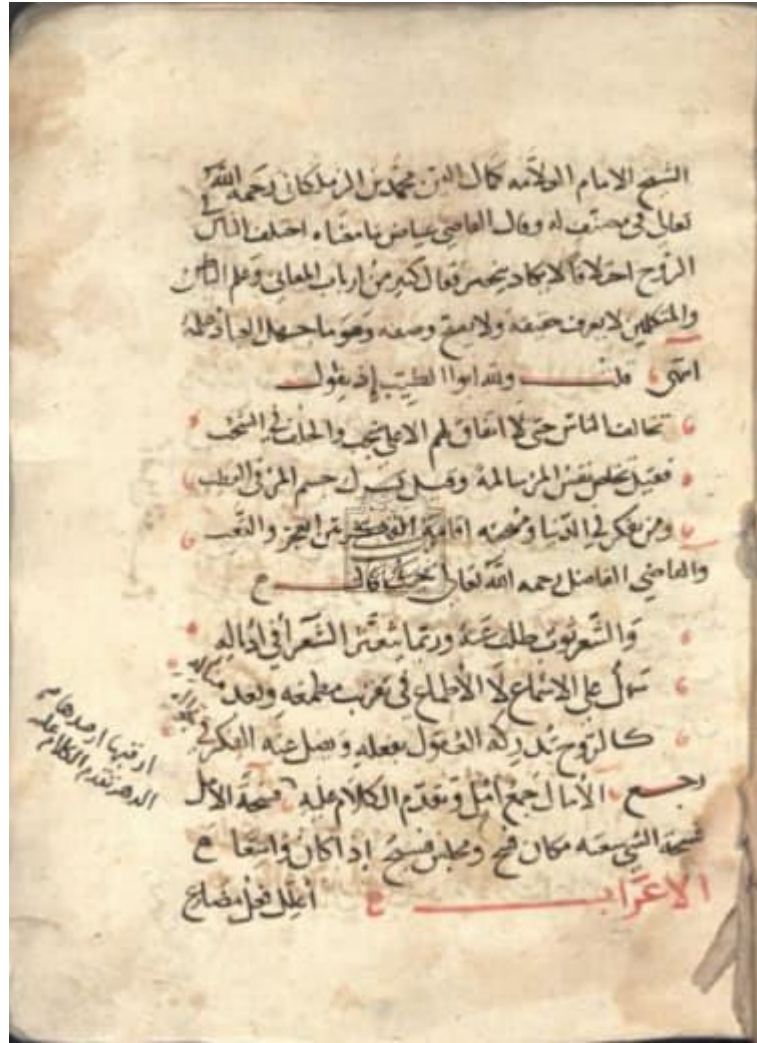 الشيخ الامام العلامه كمال الدين محمد بن الزملكاني رحمه الله
تعالى في مصنف له وقال القاضي عياض ما معناه اختلف الناس في
الروح اختلافا لا يكاد ينحصر فقال كثير من ارباب المعاني وعلم الباطن
والمتكلمين لا يعرف حقيقته ولا يصح وصفه وهو ما جهل العباد علمه
انتهى قلت ولله ابوا الطيب إذ يقول
تخالف الناس حتى لا اتفاق لهم الا على شجب والخلف في الشجب
فقيل تخلص نفس المرء سالمة وقيل تشرك جسم المرء في العطب
ومن تفكر في الدنيا ومهجته اقامه الفكر بين العجز والتعب
والقاضي الفاضل رحمه الله تعالى حيث قال
وَالشعر يوب طلب عنه وربما يتعثر الشعرا في اذياله
سهل على الاسماع لا الأطماع في تقريب مطمعه وبعد مناله
كالروح تدركه العقول بفعله ويضل عنه الفكر في
رجع الآمال جمع امل وتقدم الكلام عليه فسحة الأمل
فسحة الشي سعته مكان فسح ومجلس فسيح إذا كان واسعا
الاعراب أعلل فعل مضارع
ارقبها ارصدها
الدهر تقدم الكلام عليه